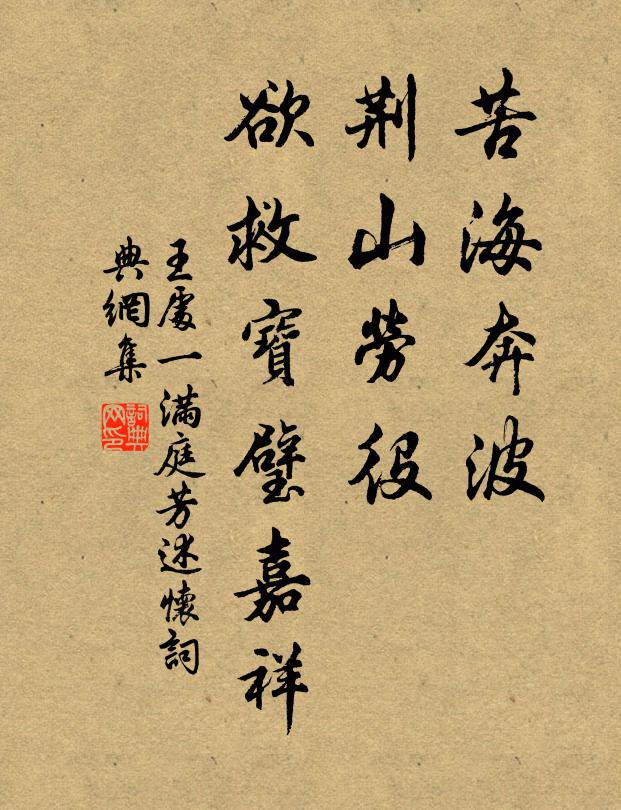 苦海奔波
荆山勞役
欲救寶璧嘉祥
王處一滿庭芳述懷詞
典網集
詞典
网印